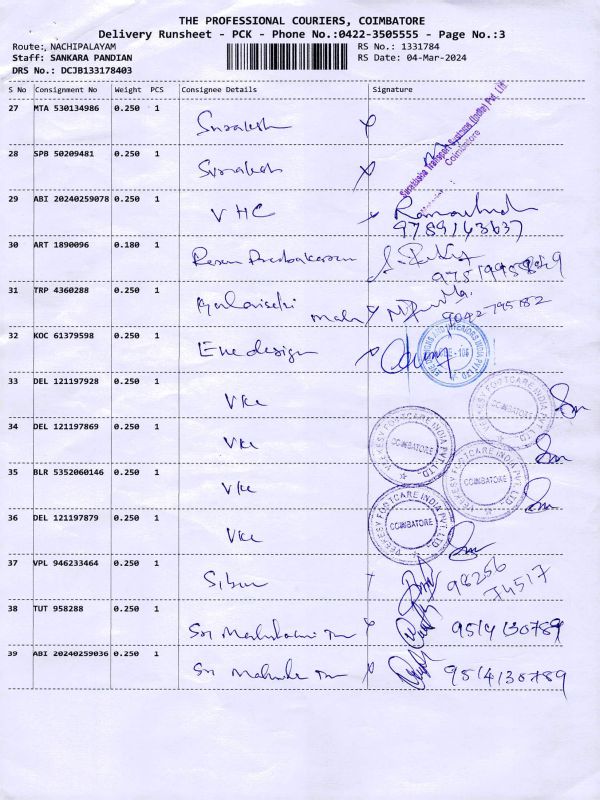 THE PROFESSIONAL COURIERS, COIMBATORE
Delivery Runsheet - PCK - Phone No.:0422-3505555 - Page No.:3
Route: NACHIPALAYAM RS No.: 1331784
Staff: SANKARA PANDIAN RS Date: 04-Mar-2024
DRS No.: DCJB133178403
S No Consignment No Weight PCS Consignee Details Signature
27 MTA 530134986 0.250 1
Coimbatore
28 SPB 50209481 0.250 1
29 ABI 20240259078 0.250 1 VHC
9789143637
30 ART 1890096 0.180 1
31 TRP 4360288 0.250 1
9042795182
32 KOC 61379598 0.250 1 Eve design
33 DEL 121197928 0.250 1 Vkc
VEEKESY FOOTCARE INDIA PVT. LTD. COIMBATORE
34 DEL 121197869 0.250 1 Vkc
VEEKESY FOOTCARE INDIA PVT. LTD. COIMBATORE
35 BLR 5352060146 0.250 1 Vkc
VEEKESY FOOTCARE INDIA PVT. LTD. COIMBATORE
36 DEL 121197879 0.250 1 Vkc
VEEKESY FOOTCARE INDIA PVT. LTD. COIMBATORE
37 VPL 946233464 0.250 1
98256
74517
38 TUT 958288 0.250 1 Sri 9514130789
39 ABI 20240259036 0.250 1 Sri 9514130789